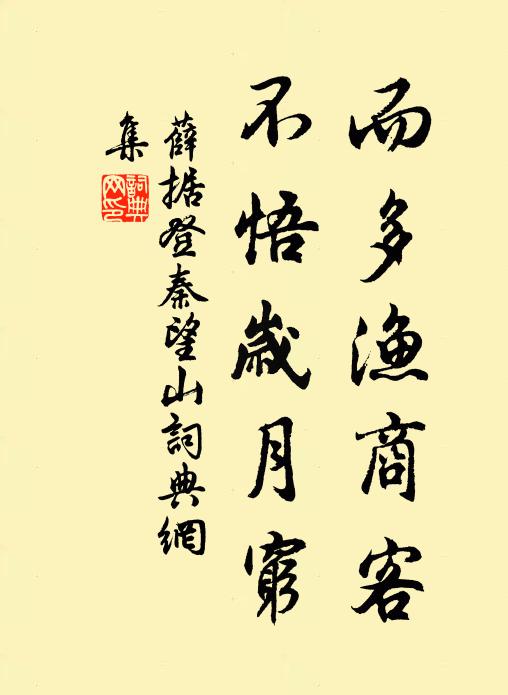 而多漁商客
不悟歲月窮
薛據登秦望山詞典網
集
詞典
网印